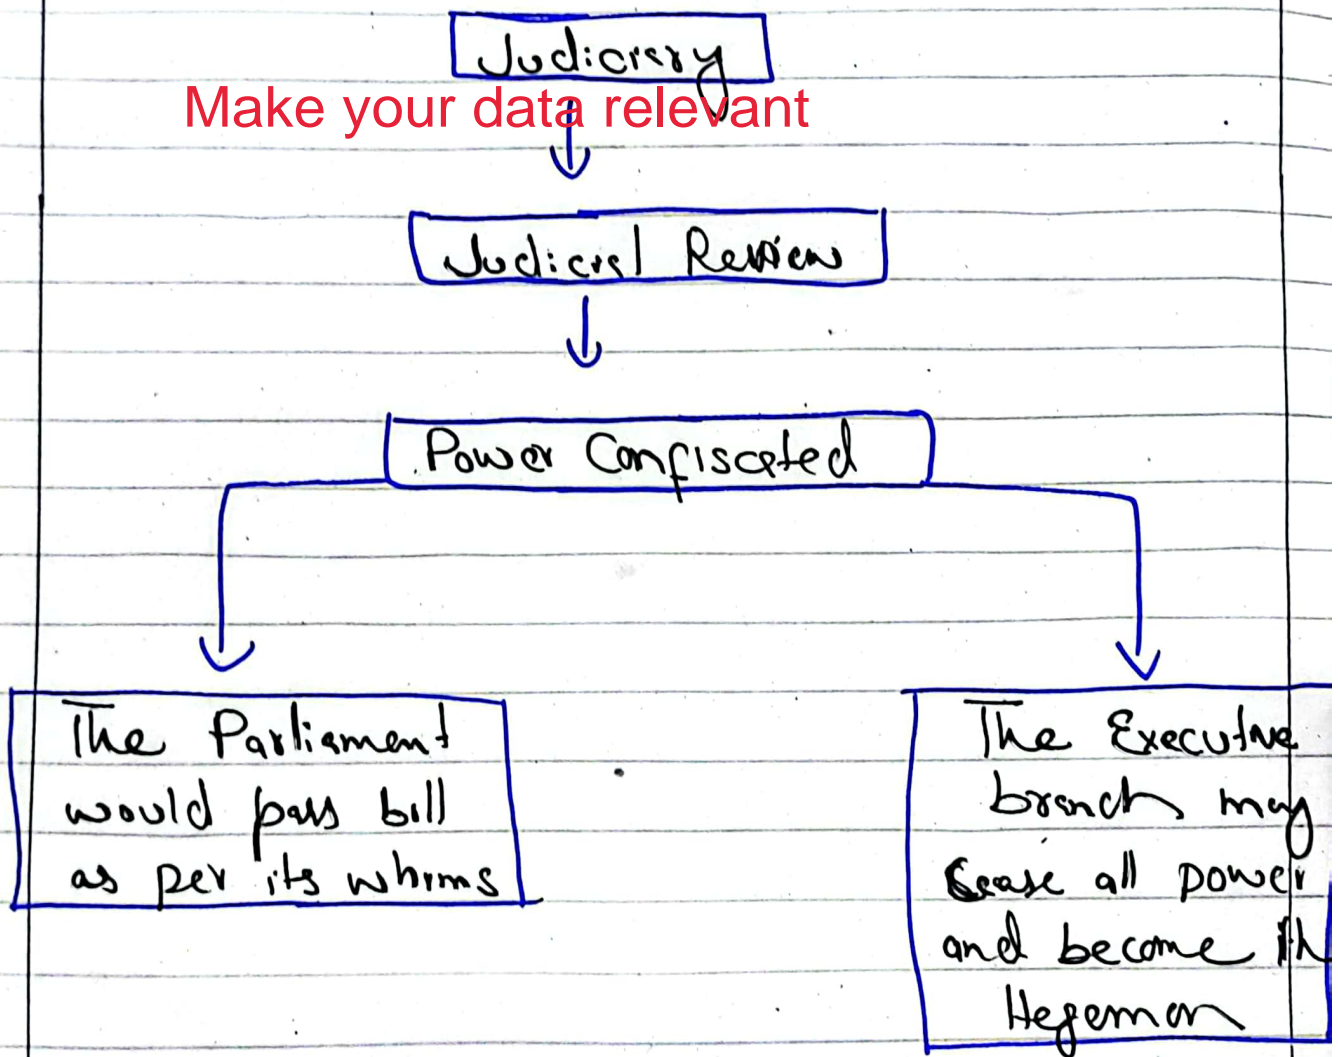 Judiciary
Make your data relevant
Judicial Review
Power Confiscated
The Parliament
would pass bill
as per its whims
The Executive
branch may
cease all power
and become th
Hegemon